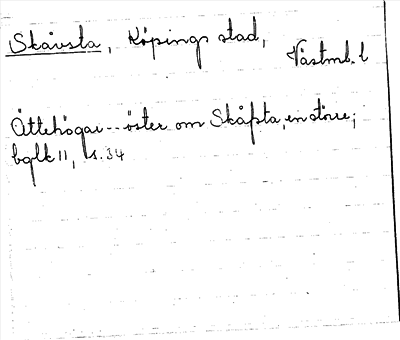 Skävsta, Köpings stad,
Västmb. l
Ättehögar -- öster om Skåpsta, en större;
bglk 11, s. 34